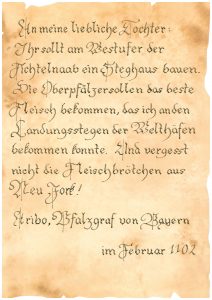 An meine liebliche Tochter:
Ihr sollt am Westufer der
Fichtelnaab ein Steghaus bauen.
Die Oberpfälzer sollen das beste
Fleisch bekommen, das ich an den
Landungsstegen der Welthäfen
bekommen konnte. Und vergesst
nicht die Fleischbrötchen aus
Neu York!
Aribo, Pfalzgraf von Bayern
im Februar 1102